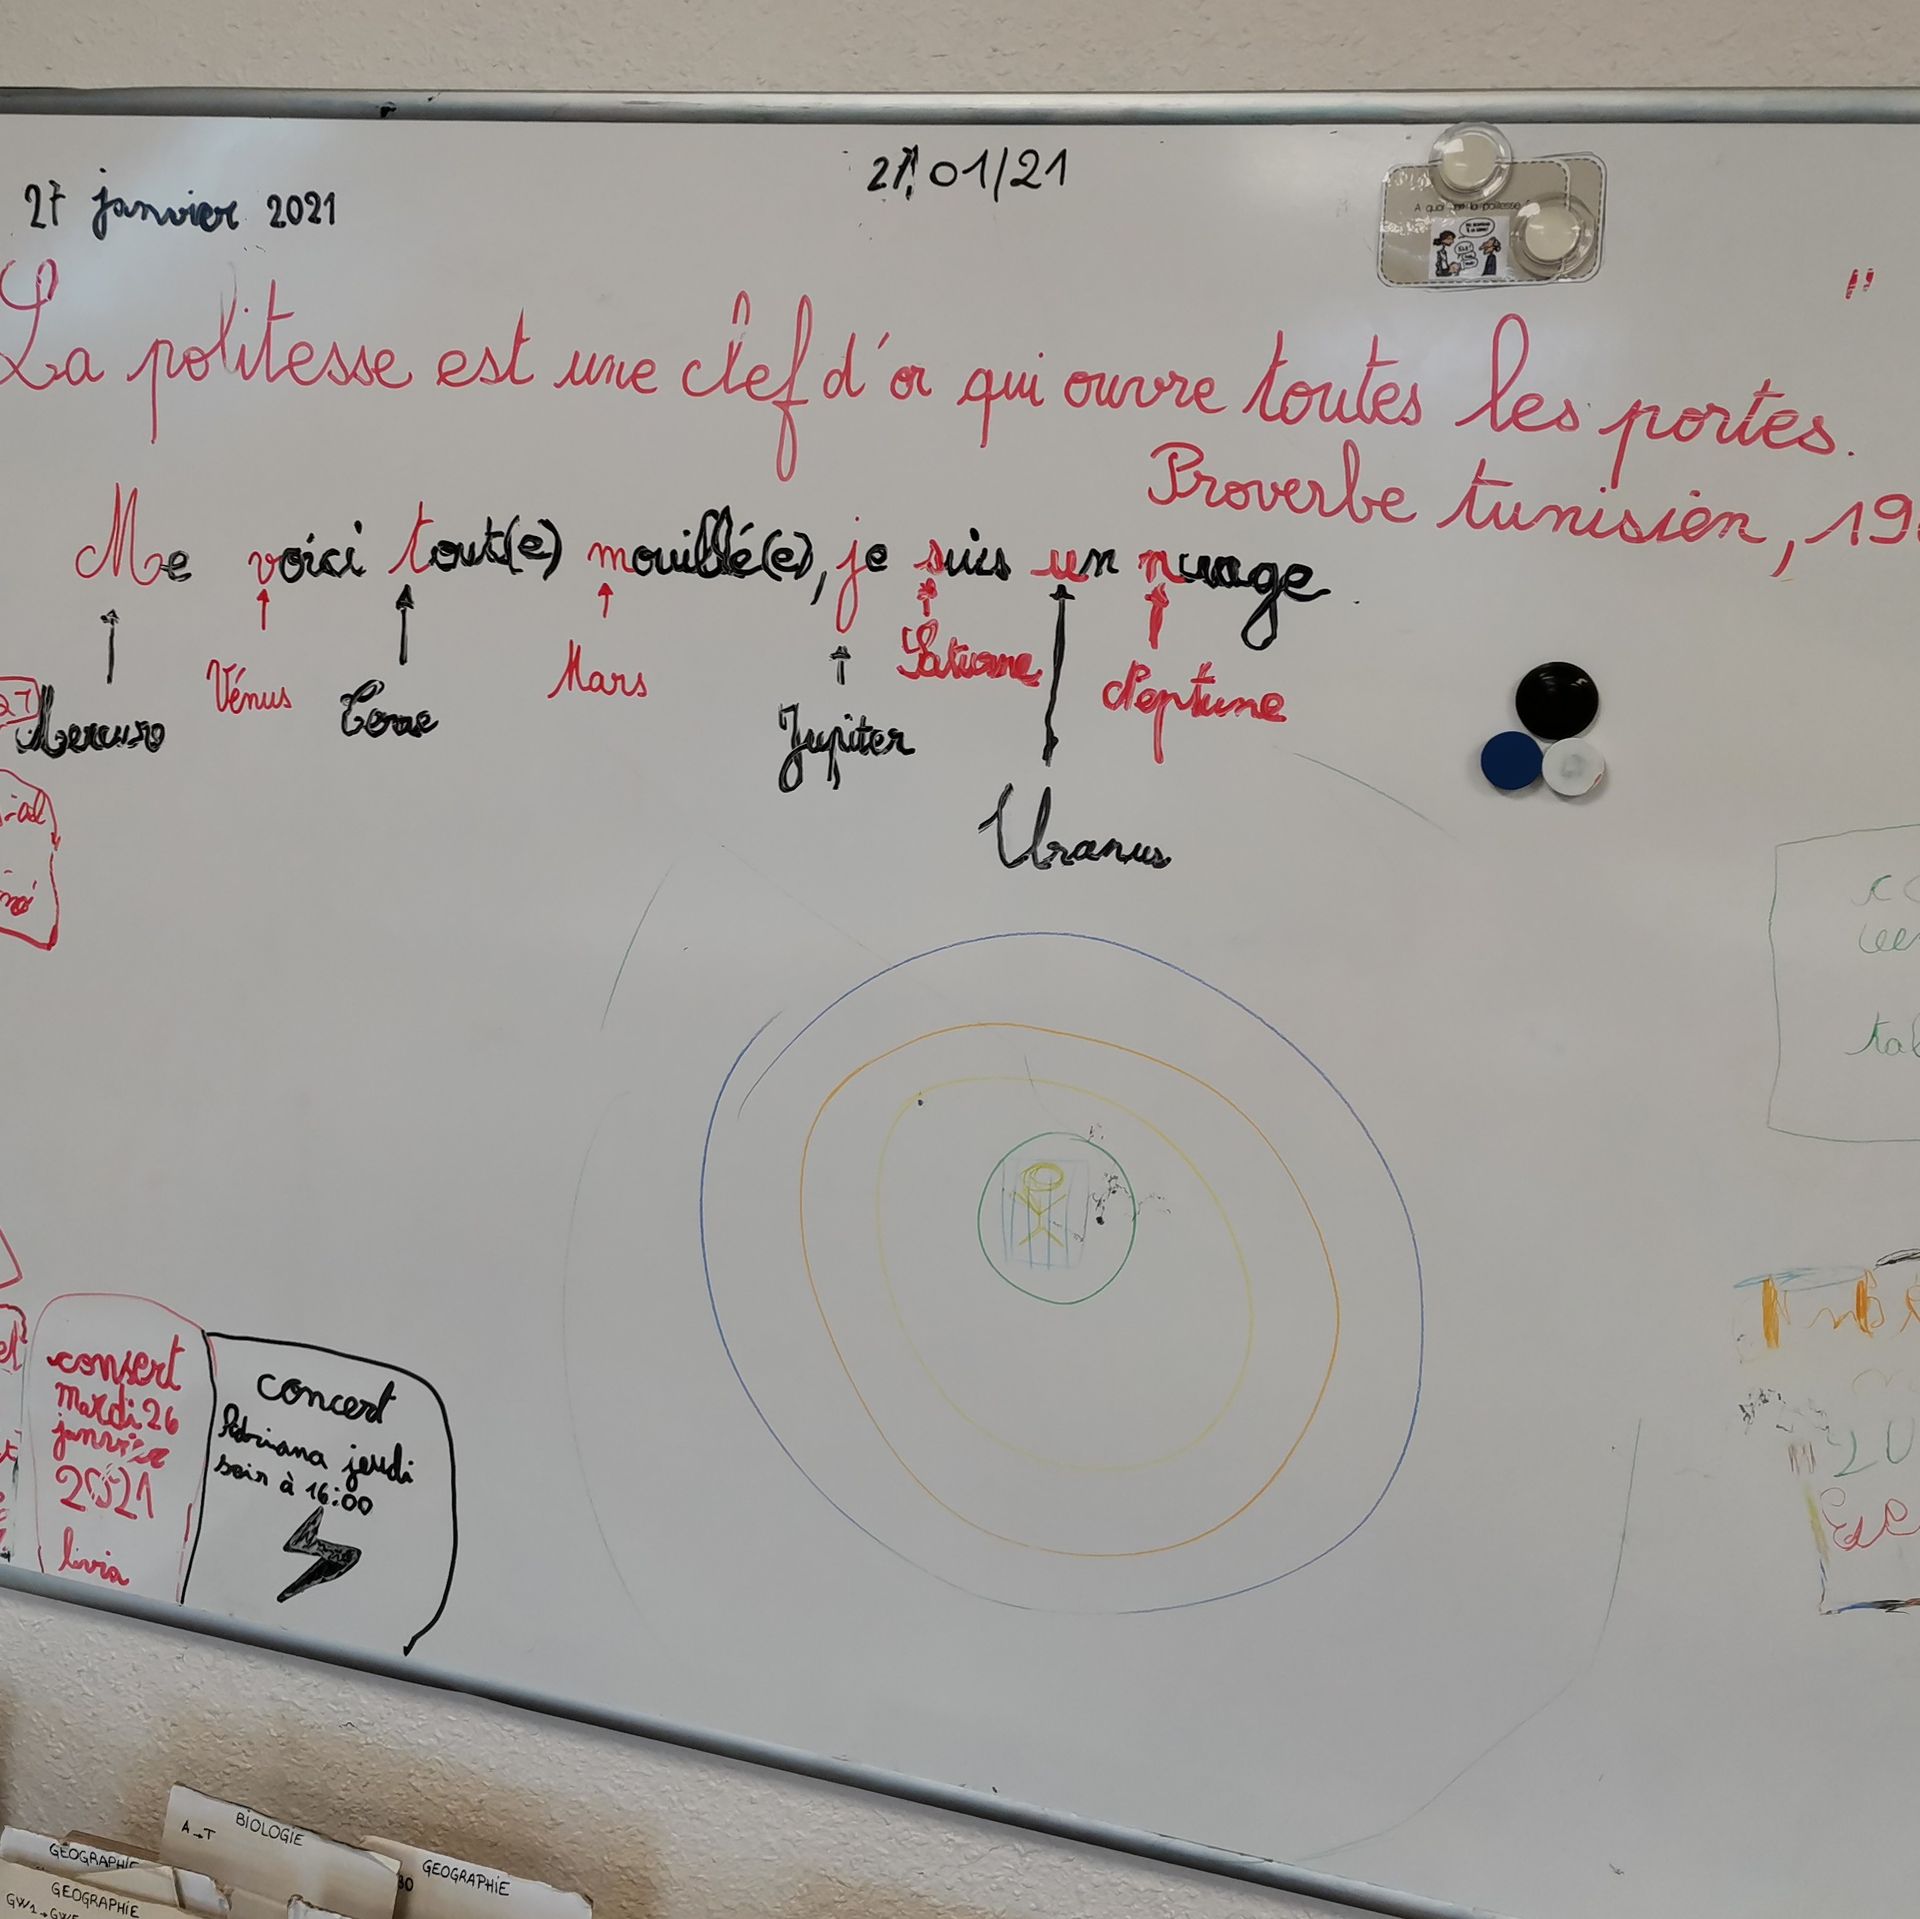 27 janvier 2021
27/01/21
A quoi sert la politesse ?
La politesse est une clef d'or qui ouvre toutes les portes.
Proverbe tunisien,
Me voici tout(e) mouillé(e), je suis un nuage.
Mercure Vénus Terre Mars Jupiter Saturne Uranus Neptune
27
consert
mardi 26
janvier
2021
livia
concert
Adriana jeudi
soir à 16:00
BIOLOGIE
A→T
GÉOGRAPHIE
GEOGRAPHIE
GEOGRAPHIE